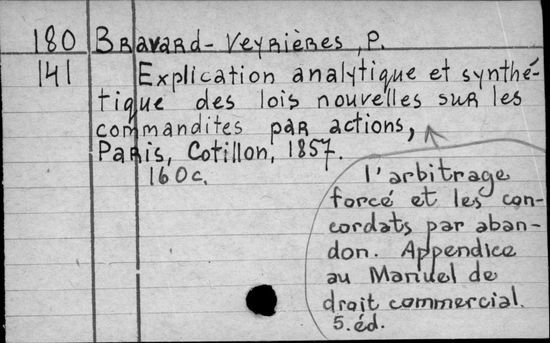 180 Bravard-Veyrières, P.
141 Explication analytique et synthé-
tique des lois nouvelles sur les
commandites par actions,
Paris, Cotillon, 1857.
160c.
l'arbitrage
forcé et les con-
cordats par aban-
don. Appendice
au Manuel de
droit commercial.
5. éd.